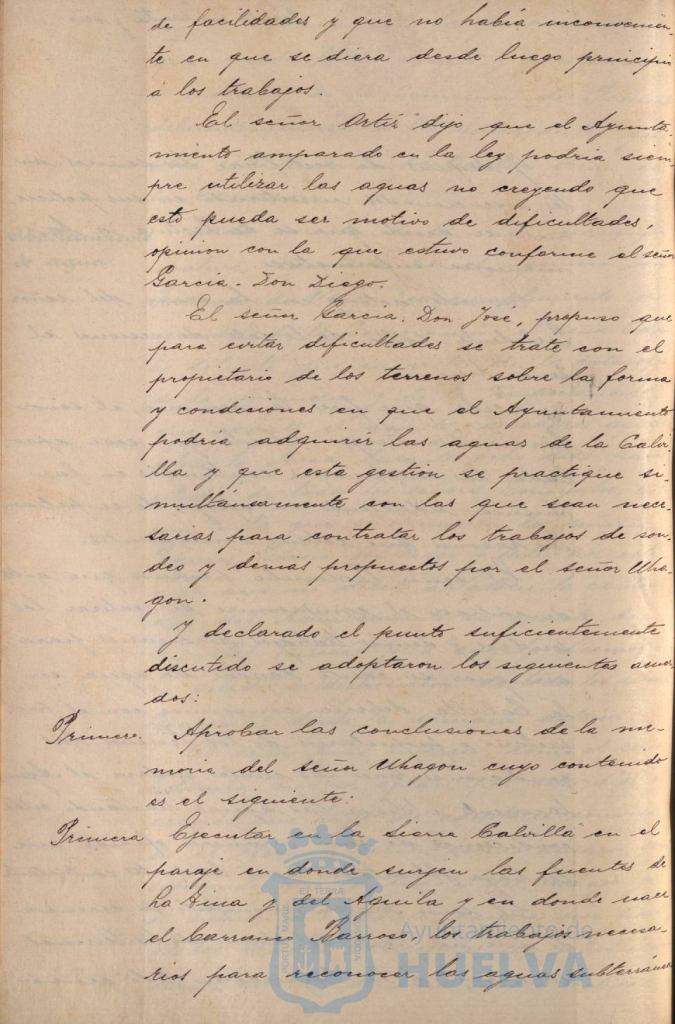 de facilidades y que no había inconvenien-
te en que se diera desde luego principio
á los trabajos.
El señor Ortiz dijo que el Ayunta-
miento amparado en la ley podria siem-
pre utilizar las aguas no creyendo que
esto pueda ser motivo de dificultades,
opinion con la que estuvo conforme el señor
Garcia. Don Diego.
El señor Garcia. Don José, propuso que
para cortar dificultades se trate con el
propietario de los terrenos sobre la forma
y condiciones en que el Ayuntamiento
podria adquirir las aguas de la Calvi-
lla y que esta gestion se practique si-
multáneamente con las que sean nece-
sarias para contratar los trabajos de son-
deo y demás propuestos por el señor Uha-
gon.
Y declarado el punto suficientemente
discutido se adoptaron los siguientes acuer-
dos:
Primero. Aprobar las conclusiones de la me-
moria del señor Uhagon cuyo contenido
es el siguiente:
Primera Ejecutar en la Sierra Calvilla en el
paraje en donde surjen las fuentes de
La y del Aguila y en donde nace
el Barranco, los trabajos necesa-
rios para reconocer las aguas subterráneas
Ayuntamiento de
HUELVA